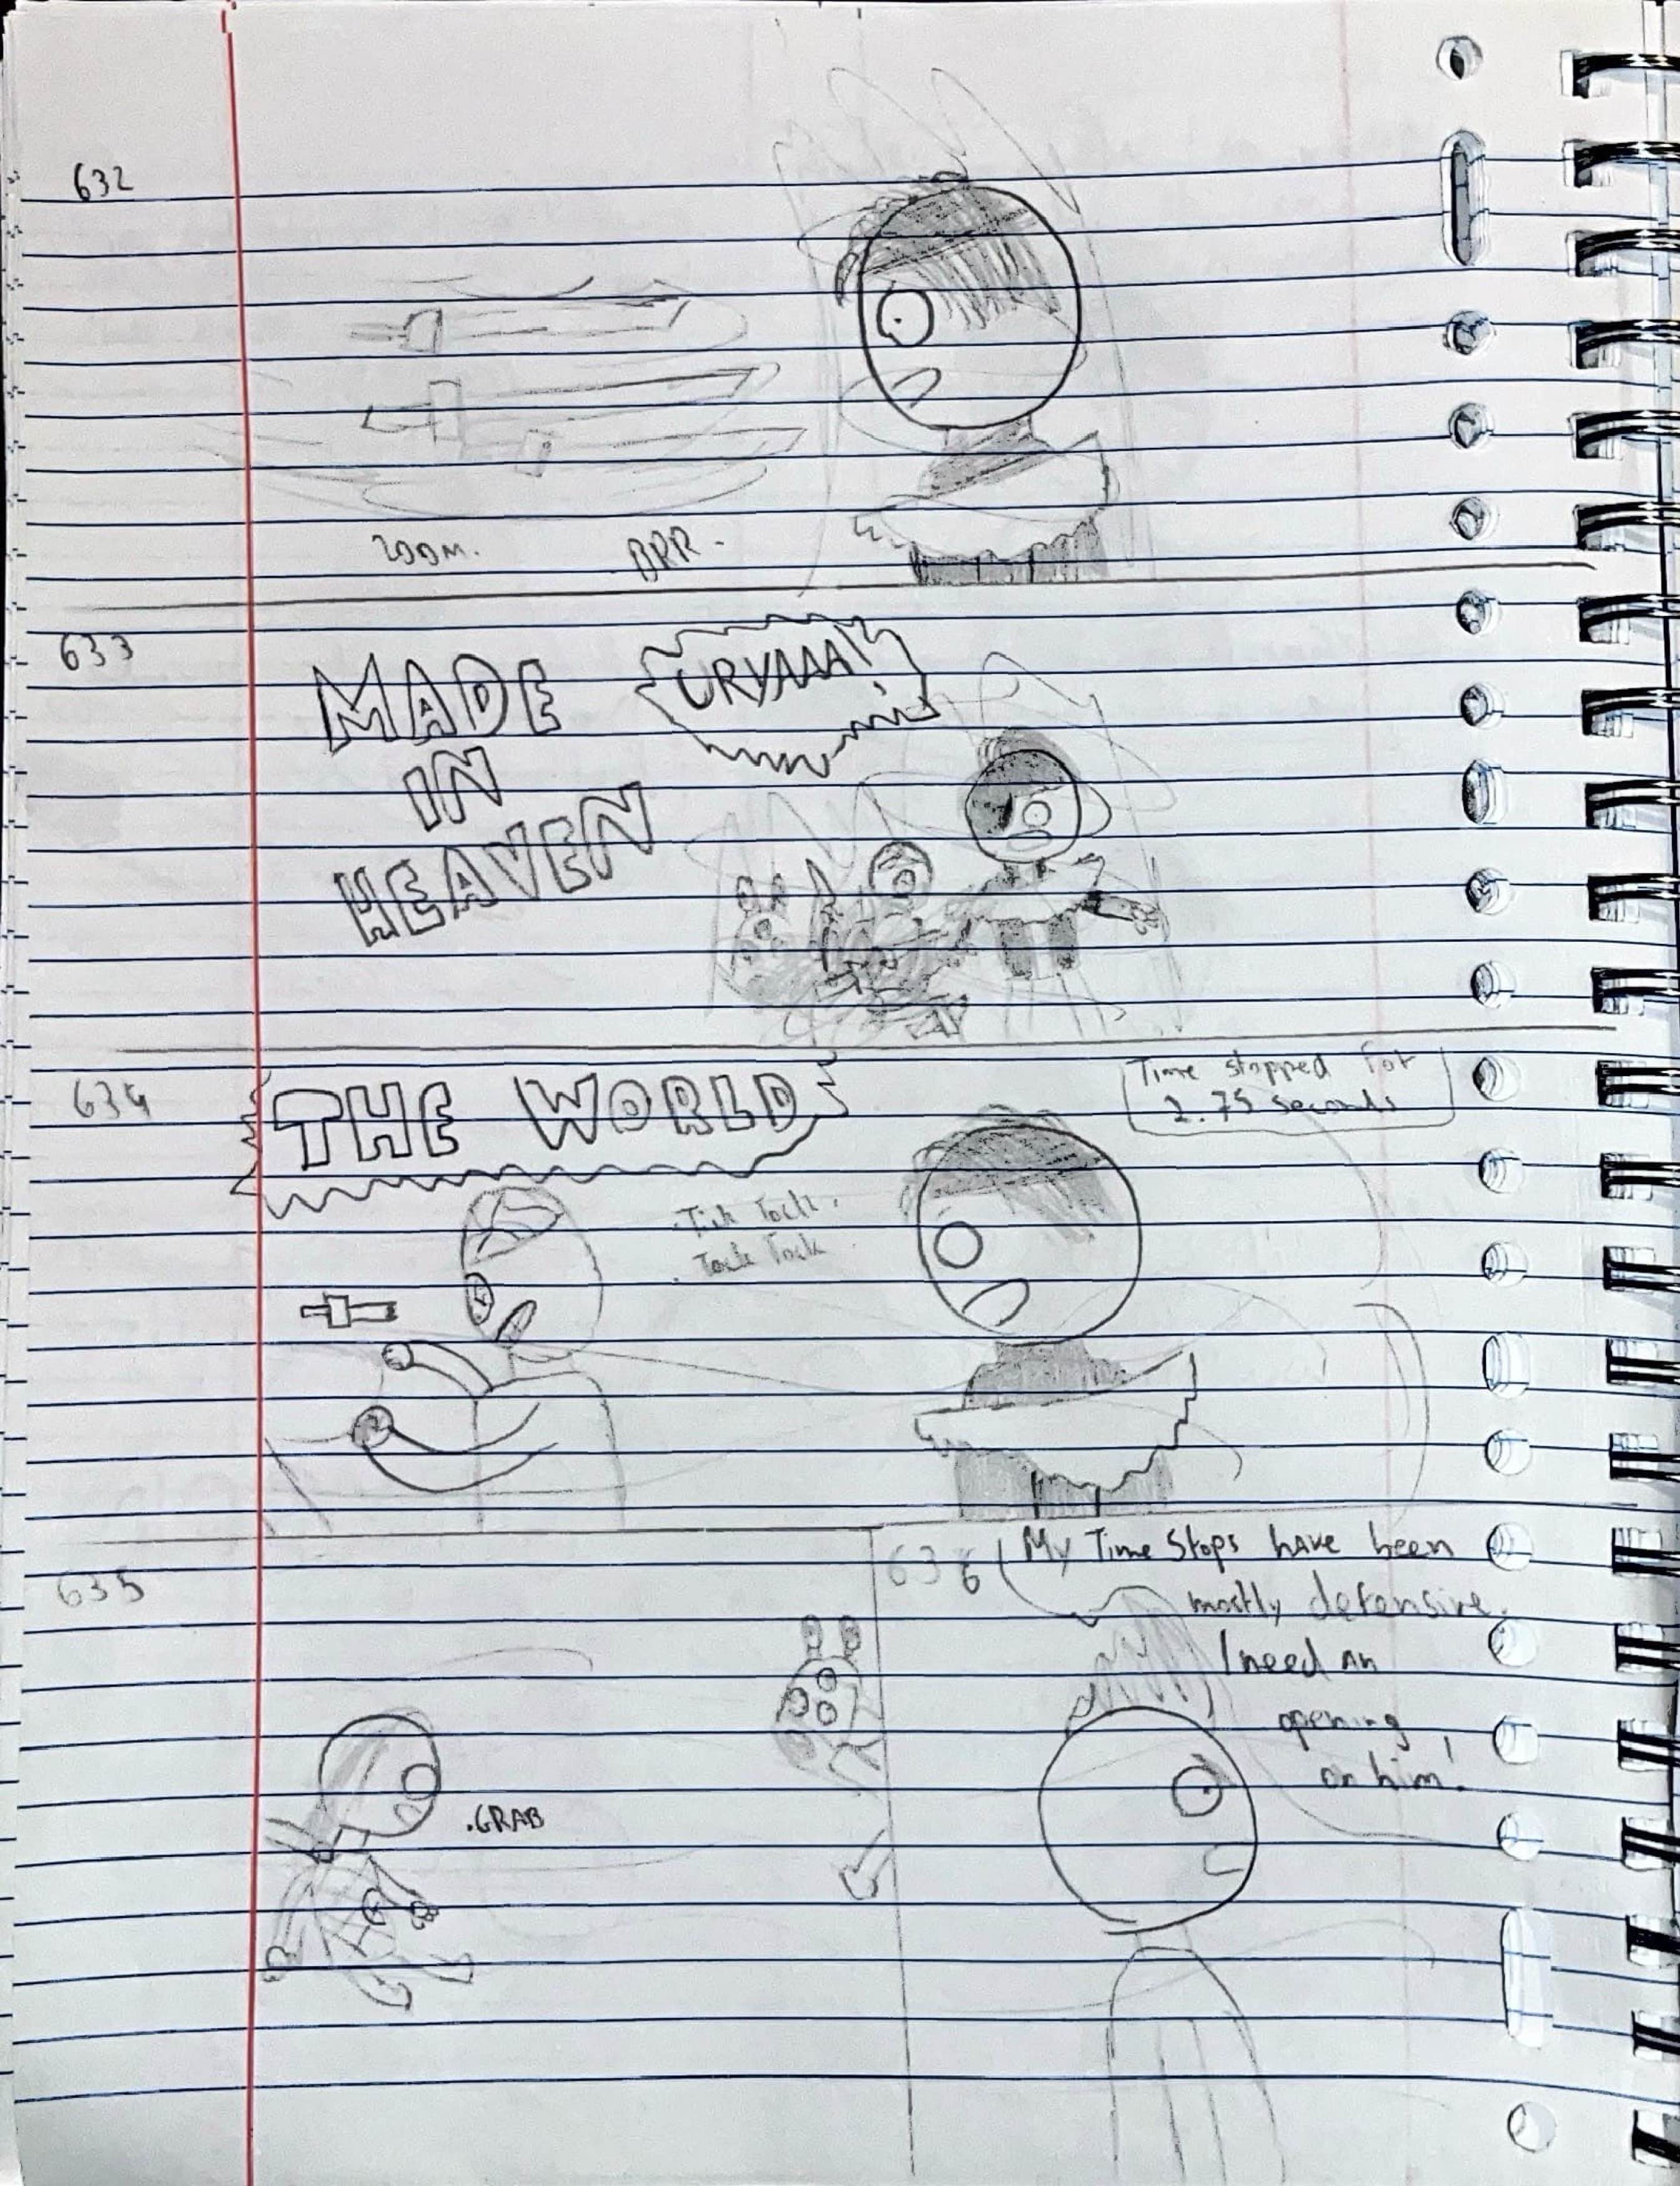 632
ZOOM.
BRR.
633
MADE
IN
HEAVEN
URYAAA!
634
THE WORLD
Time stopped for
2.75 seconds
Tick Tock.
Tock Tock
635
.GRAB
636
My Time Stops have been
mostly defensive.
I need an
opening
on him!